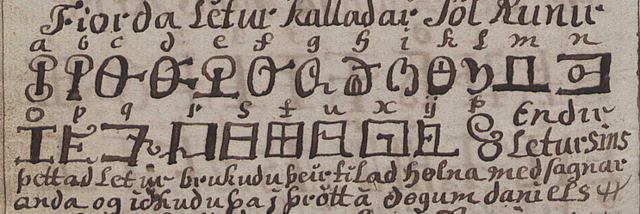 Fiorda Letur kalladar Sól Runir
a b c d e f g h i k l m n
o p q r s t u x y þ Endir
Letursins
þettad Letur brukudu þeir til ad hølna med sagnar
anda og idkudu þa j þrótta døgum daniels